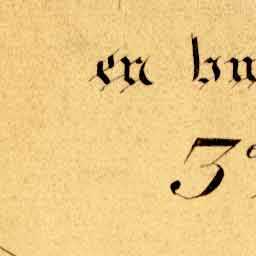 en hu
3e